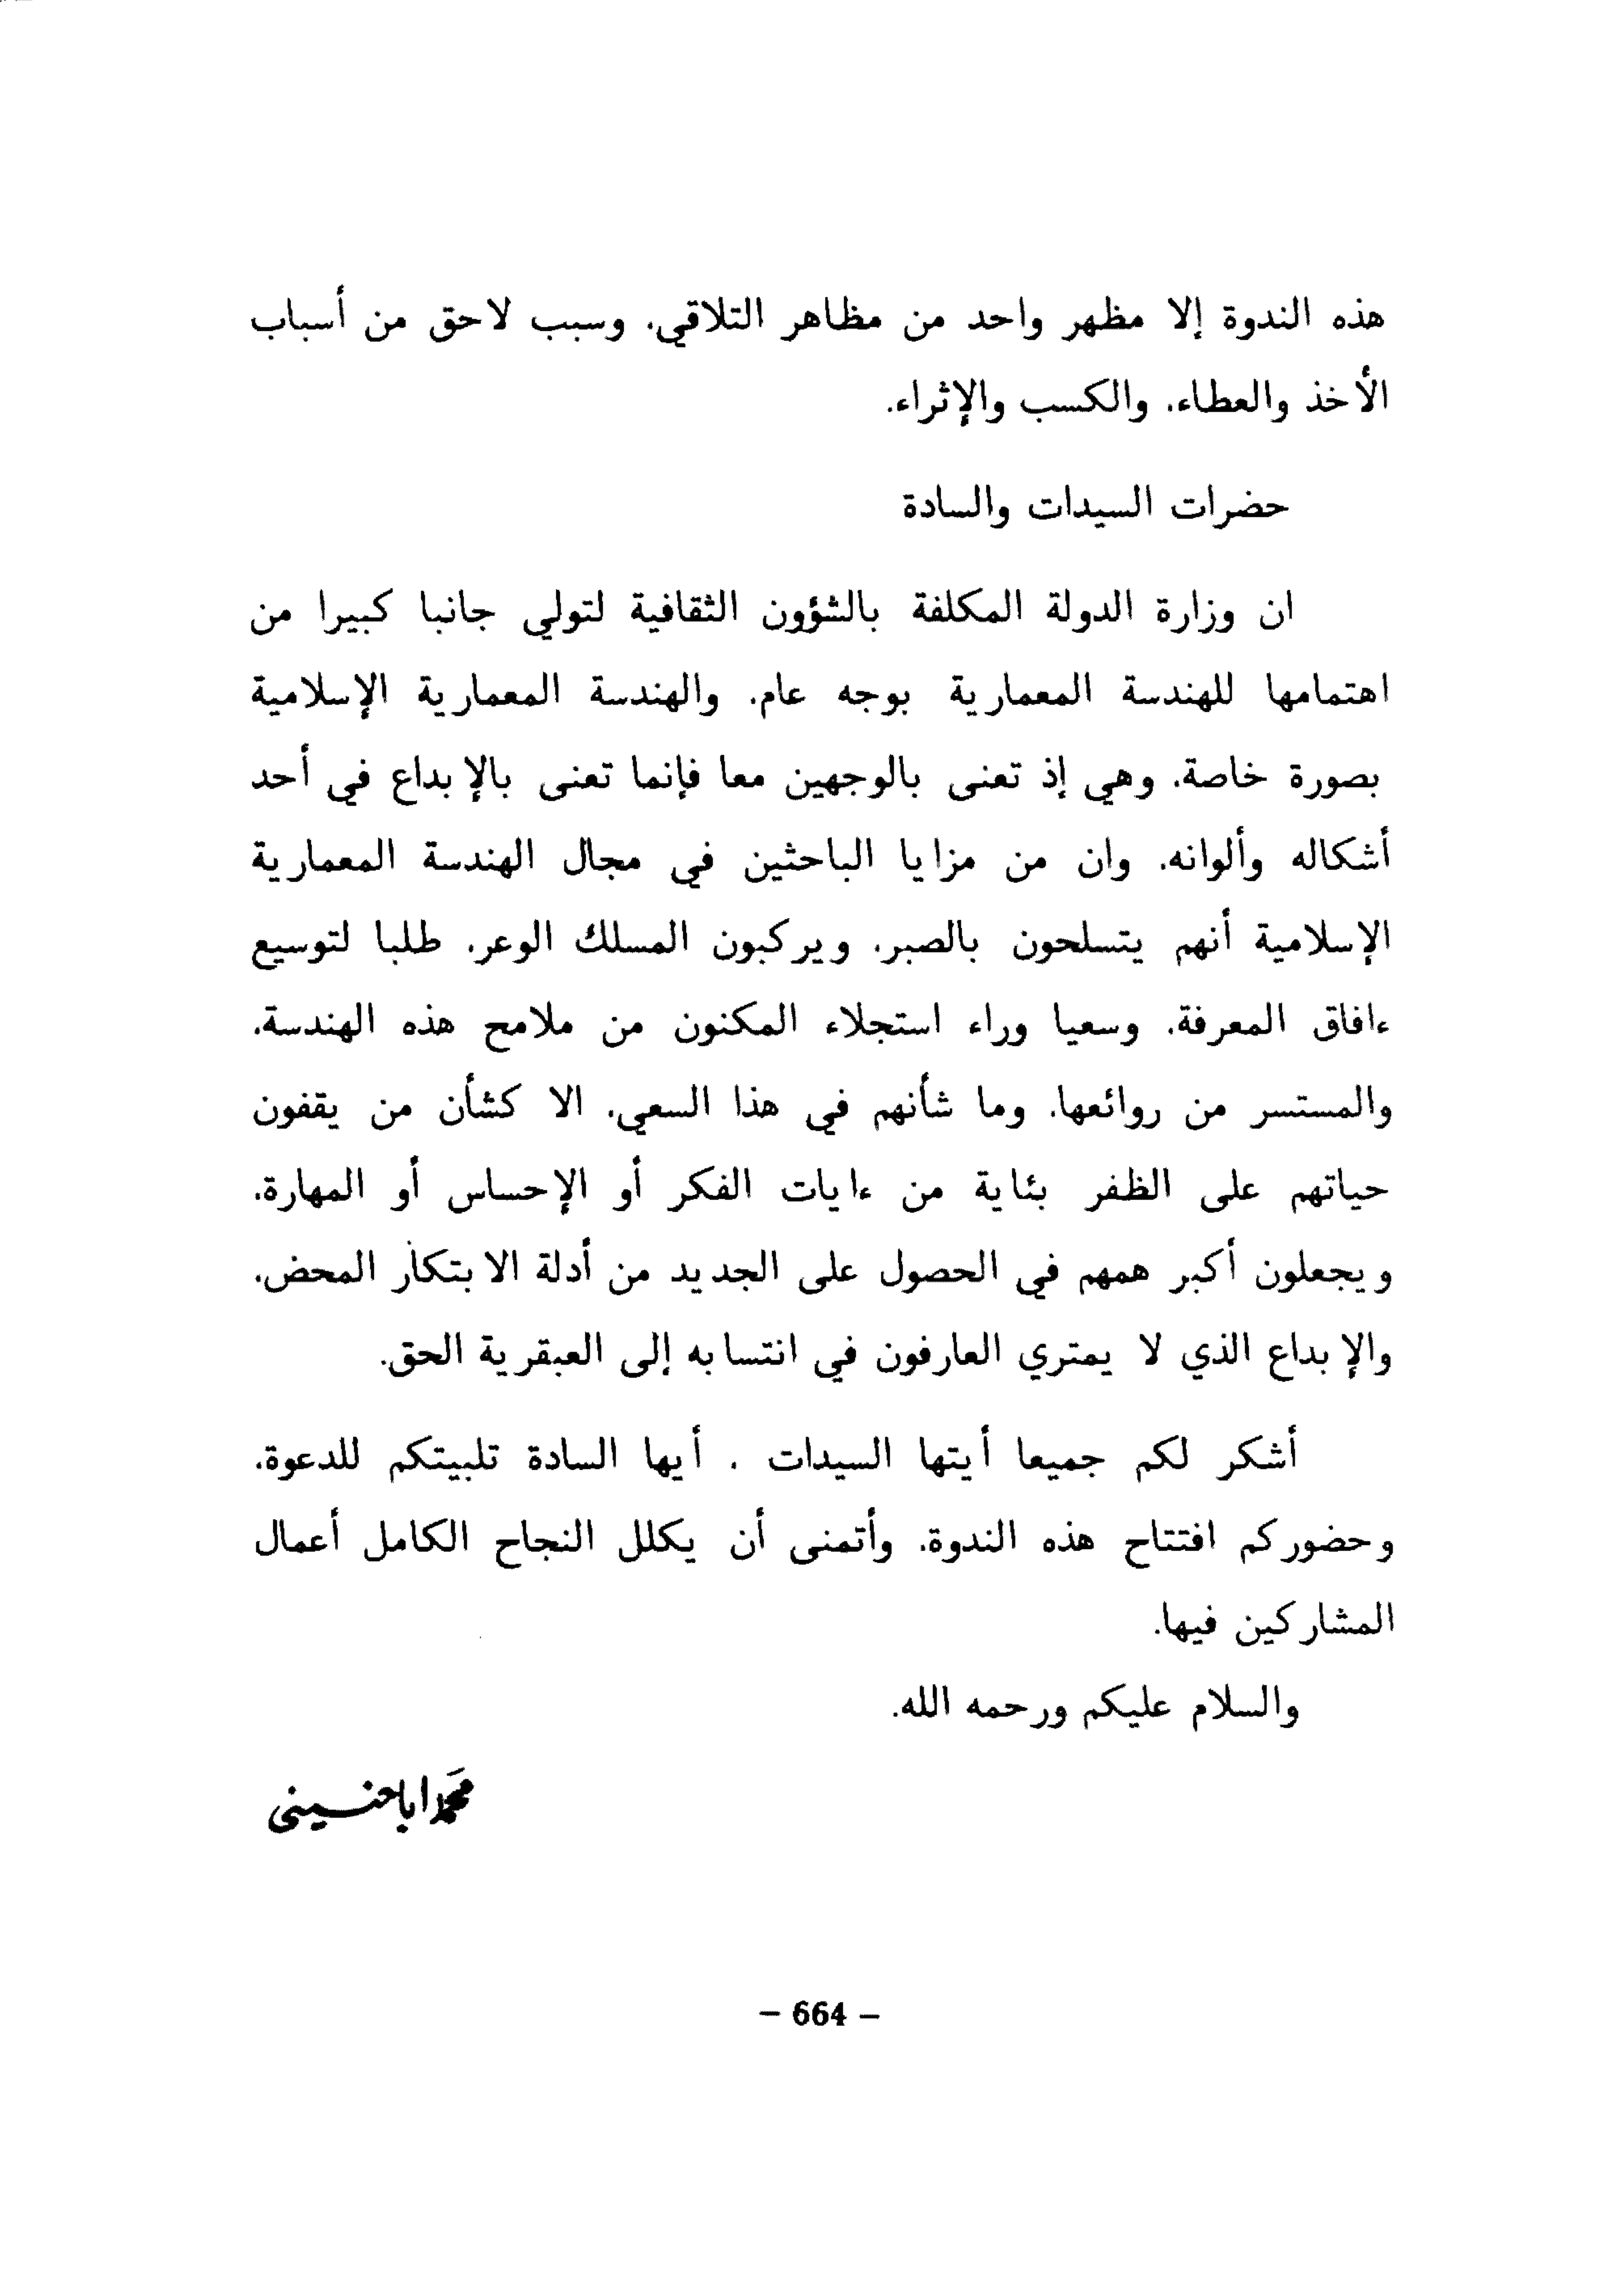 هذه الندوة إلا مظهر واحد من مظاهر التلاقي، وسبب لاحق من أسباب
الأخذ والعطاء، والكسب والإثراء.
حضرات السيدات والسادة
ان وزارة الدولة المكلفة بالشؤون الثقافية لتولي جانبا كبيرا من
اهتمامها للهندسة المعمارية بوجه عام، والهندسة المعمارية الإسلامية
بصورة خاصة، وهي إذ تعنى بالوجهين معا فإنما تعنى بالإبداع في أحد
أشكاله وألوانه، وان من مزايا الباحثين في مجال الهندسة المعمارية
الإسلامية أنهم يتسلحون بالصبر، ويركبون المسلك الوعر، طلبا لتوسيع
ءافاق المعرفة، وسعيا وراء استجلاء المكنون من ملامح هذه الهندسة،
والمستسر من روائعها، وما شأنهم في هذا السعي، الا كشأن من يقفون
حياتهم على الظفر بئاية من ءايات الفكر أو الإحساس أو المهارة،
ويجعلون أكبر همهم في الحصول على الجديد من أدلة الابتكار المحض،
والإبداع الذي لا يمتري العارفون في انتسابه إلى العبقرية الحق.
أشكر لكم جميعا أيتها السيدات ، أيها السادة تلبيتكم للدعوة،
وحضوركم افتتاح هذه الندوة، وأتمنى أن يكلل النجاح الكامل أعمال
المشاركين فيها.
والسلام عليكم ورحمه الله.
محمد اباحنيني
– 664 –